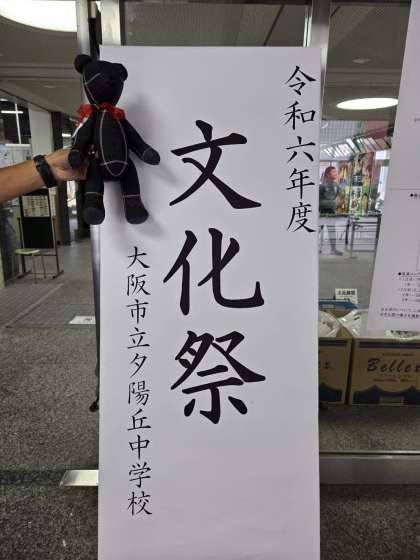 令和六年度
文化祭
大阪市立夕陽丘中学校
Bellex